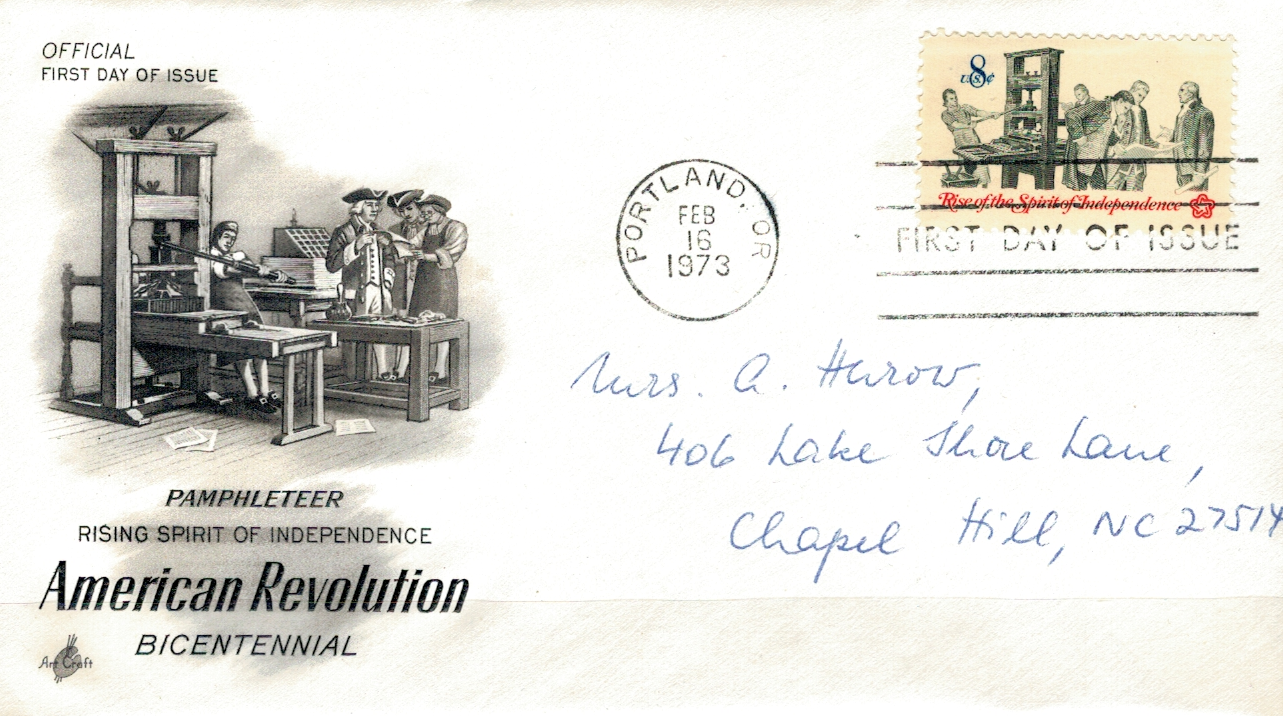 OFFICIAL
FIRST DAY OF ISSUE
8
U.S. ¢
Rise of the Spirit of Independence
PORTLAND, OR
FEB
16
1973
FIRST DAY OF ISSUE
Mrs. A. Hurow,
406 Lake Shore Lane,
Chapel Hill, NC 27514
PAMPHLETEER
RISING SPIRIT OF INDEPENDENCE
American Revolution
BICENTENNIAL
Art Craft